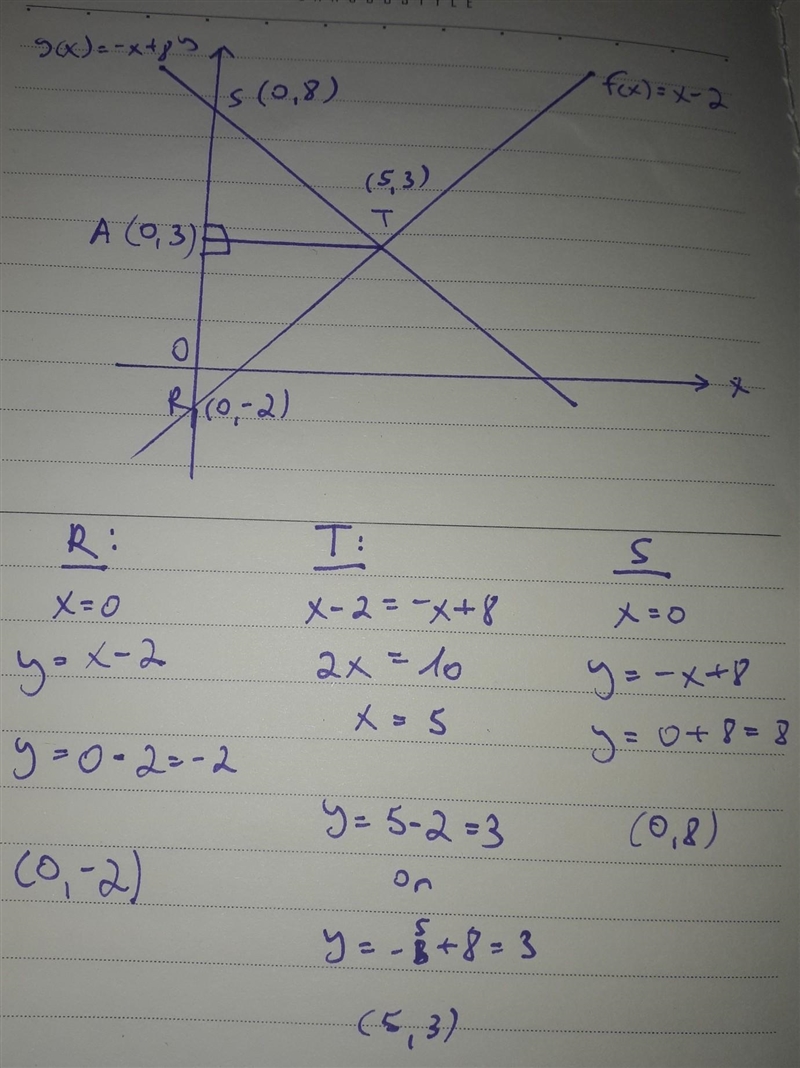 g(x)=-x+8 y
S (0,8)
f(x)=x-2
(5,3)
T
A (0,3)
O
x
R (0,-2)
R:
x=0
y= x-2
y=0-2=-2
(0,-2)
T:
x-2=-x+8
2x=10
x=5
y=5-2=3
or
y=-5+8=3
(5,3)
S
x=0
y=-x+8
y=0+8=8
(0,8)